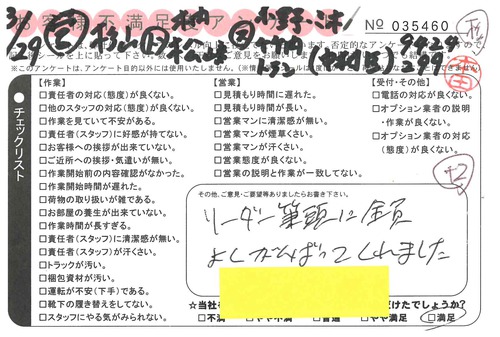 3/29
No 035460
チェックリスト
【作業】
□責任者の対応(態度)が良くない。
□他のスタッフの対応(態度)が良くない。
□作業を見ていて不安がある。
□責任者(スタッフ)に好感が持てない。
□お客様への挨拶が出来ていない。
□ご近所への挨拶・気遣いが無い。
□作業開始前の内容確認がなかった。
□作業開始時間が遅れた。
□荷物の取り扱いが雑である。
□お部屋の養生が出来ていない。
□作業時間が長すぎる。
□責任者(スタッフ)に清潔感が無い。
□責任者(スタッフ)が汗くさい。
□トラックが汚い。
□梱包資材が汚い。
□運転が不安(下手)である。
□靴下の履き替えをしてない。
□スタッフにやる気がみられない。
【営業】
□見積もり時間に遅れた。
□見積もり時間が長い。
□営業マンに清潔感が無い。
□営業マンが煙草くさい。
□営業マンが汗くさい。
□営業態度が良くない。
□営業の説明と作業が一致してない。
【受付・その他】
□電話の対応が良くない。
□オプション業者の説明
・作業が良くない。
□オプション業者の対応
(態度)が良くない。
その他、ご意見・ご要望等ありましたらお書き下さい。
リーダー筆頭に全員
よくがんばってくれました
★当社を
だけたでしょうか?
□不満
□やや不満
□普通
□やや満足
□満足